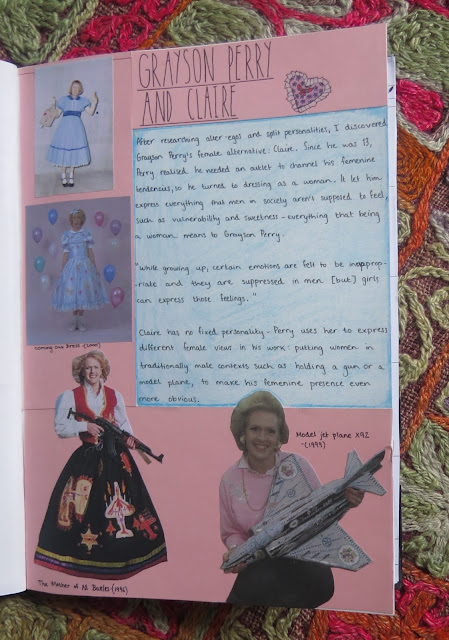 GRAYSON PERRY
AND CLAIRE
After researching alter-egos and split personalities, I discovered
Grayson Perry's female alternative: Claire. Since he was 13,
Perry realised he needed an outlet to channel his femenine
tendencies, so he turned to dressing as a woman. It let him
express everything that men in society aren't supposed to feel,
such as vulnerability and sweetness - everything that being
a woman means to Grayson Perry.
"While growing up, certain emotions are felt to be inapprop-
riate and they are suppressed in men [but] girls
can express those feelings."
Claire has no fixed personality - Perry uses her to express
different female views in his work: putting women in
traditionally male contexts such as holding a gun or a
model plane, to make his femenine presence even
more obvious.
Coming Out Dress (2000)
Model jet plane X92
- (1999)
The Mother of All Battles (1996)